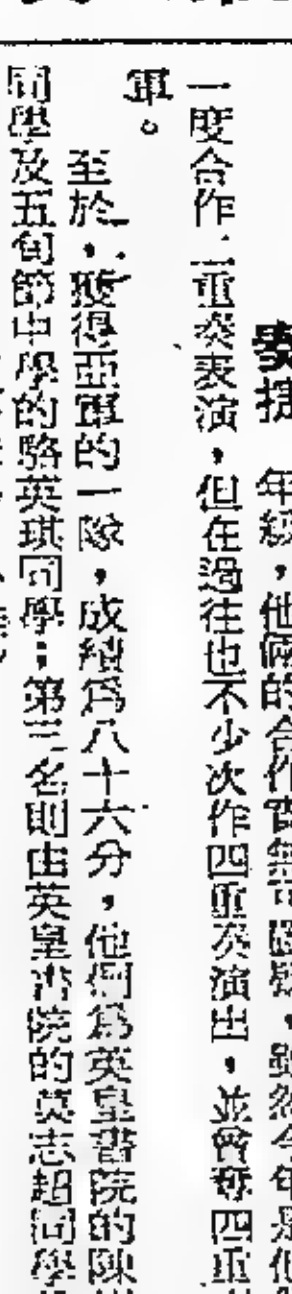 年級，他倆的合作實無可置疑，雖然今年是他
一度合作二重奏表演，但在過往也不少次作四重奏演出，並曾奪四重
軍。
至於，獲得亞軍的一隊，成績為八十六分，他們為英皇書院的陳
同學及五旬節中學的駱英琪同學；第三名則由英皇書院的莫志超同學